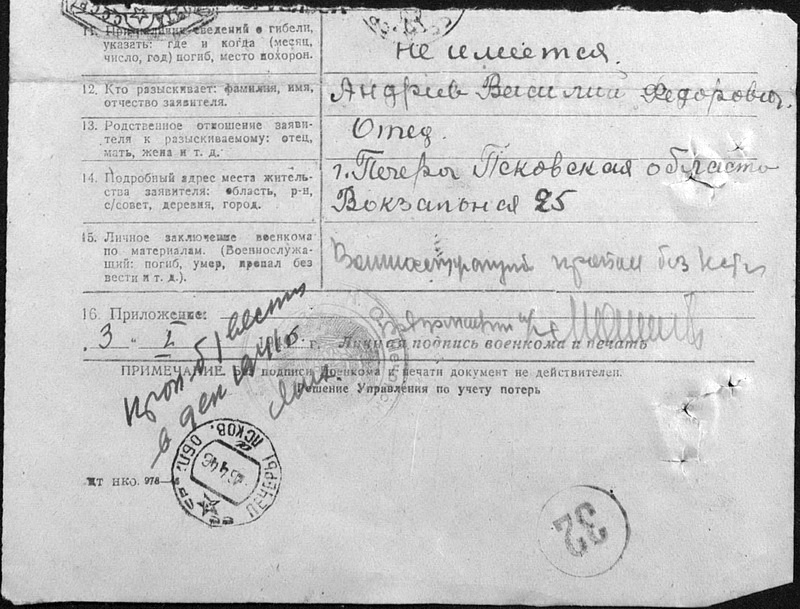 11. сведений о гибели, Не имеется.
указать: где и когда (месяц,
число, год) погиб, место похорон.
12. Кто разыскивает: фамилия, имя, Андриев Василий Федорович.
отчество заявителя.
13. Родственное отношение заяви- Отец.
теля к разыскиваемому: отец,
мать, жена и т. д.
14. Подробный адрес места житель- г. Печеры Псковская область
ства заявителя: область, р-н, Вокзальная 25
с/совет, деревня, город.
15. Личное заключение военкома
по материалам. (Военнослужа- Военнослужащий пропал без вести
щий: погиб, умер, пропал без
вести и т. д.).
16. Приложение:
3 " I г. Личная подпись военкома и печать
ПРИМЕЧАНИЕ. Без подписи военкома и печати документ не действителен.
Решение Управления по учету потерь
Проп. б/вести
в дек 1941г
ПЕЧЕРЫ ПСКОВ. ОБЛ.
4 46
НКО. 976
32